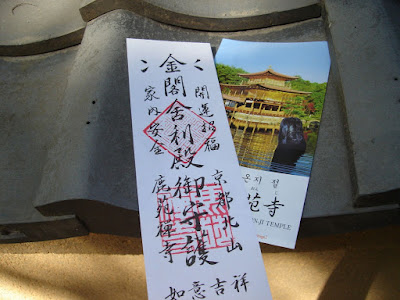 開運招福
京都北山
金閣舍利殿御守護
家内安全
鹿苑禅寺
如意吉祥
온지절
苑寺
N-JI TEMPLE